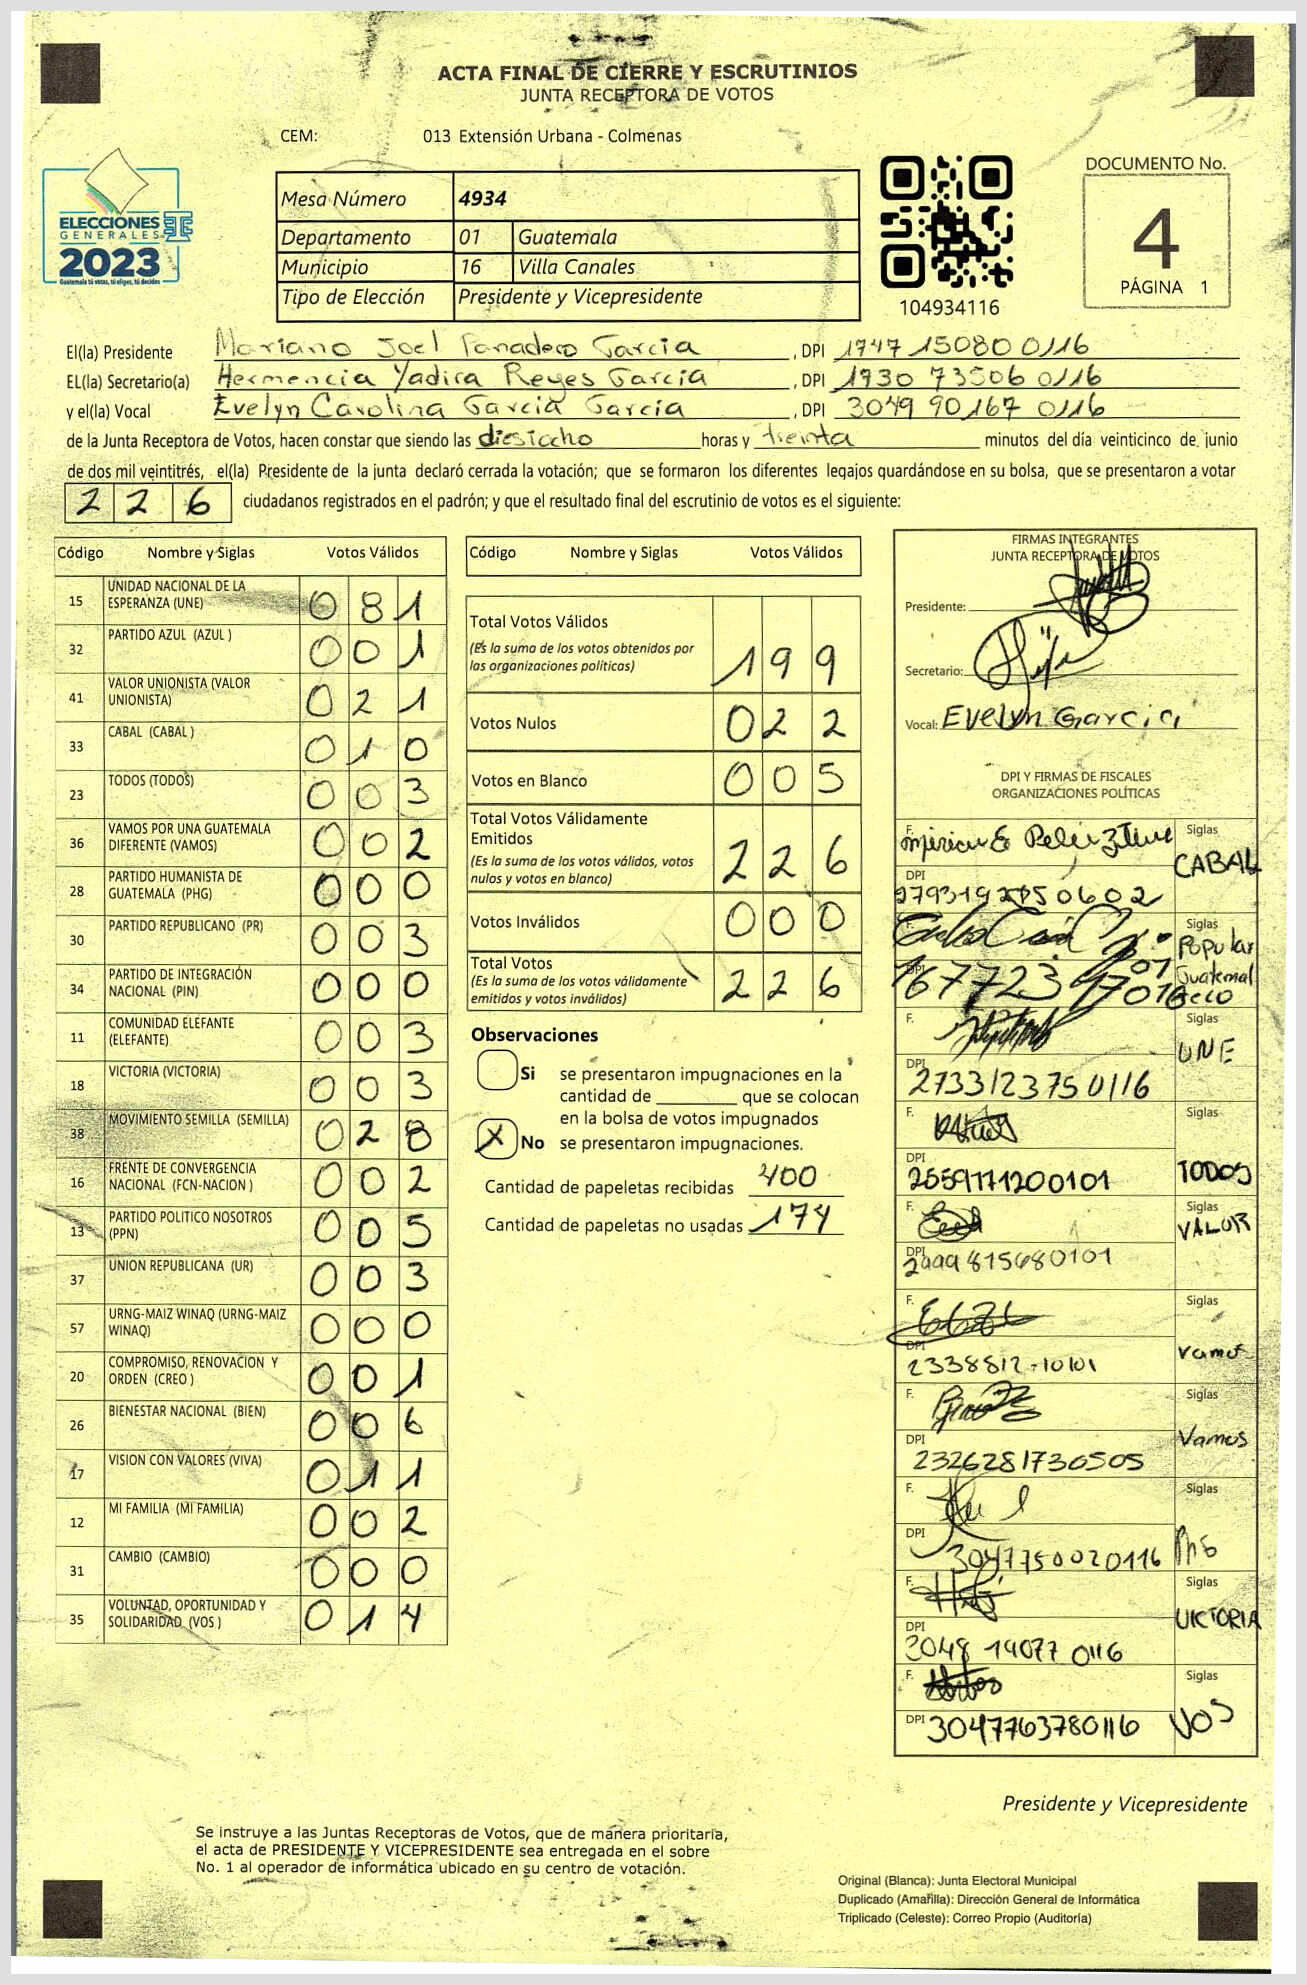 ACTA FINAL DE CIERRE Y ESCRUTINIOS
JUNTA RECEPTORA DE VOTOS
CEM: 013 Extensión Urbana - Colmenas
ELECCIONES
GENERALES
2023
Guatemala tú votas, tú eliges, tú decides
Mesa Número 4934
Departamento 01 Guatemala
Municipio 16 Villa Canales
Tipo de Elección Presidente y Vicepresidente
104934116
DOCUMENTO No.
4
PÁGINA 1
El(la) Presidente Mariano Joel Panadero Garcia , DPI 1747 15080 0116
EL(la) Secretario(a) Hermencia Yadira Reyes Garcia , DPI 1930 73506 0116
y el(la) Vocal Evelyn Carolina Garcia Garcia , DPI 3049 90167 0116
de la Junta Receptora de Votos, hacen constar que siendo las diesiocho horas y treinta minutos del día veinticinco de junio
de dos mil veintitrés, el(la) Presidente de la junta declaró cerrada la votación; que se formaron los diferentes legajos quardándose en su bolsa, que se presentaron a votar
226 ciudadanos registrados en el padrón; y que el resultado final del escrutinio de votos es el siguiente:
Código Nombre y Siglas Votos Válidos
15 UNIDAD NACIONAL DE LA ESPERANZA (UNE) 081
32 PARTIDO AZUL (AZUL ) 001
41 VALOR UNIONISTA (VALOR UNIONISTA) 021
33 CABAL (CABAL ) 010
23 TODOS (TODOS) 003
36 VAMOS POR UNA GUATEMALA DIFERENTE (VAMOS) 002
28 PARTIDO HUMANISTA DE GUATEMALA (PHG) 000
30 PARTIDO REPUBLICANO (PR) 003
34 PARTIDO DE INTEGRACIÓN NACIONAL (PIN) 000
11 COMUNIDAD ELEFANTE (ELEFANTE) 003
18 VICTORIA (VICTORIA) 003
38 MOVIMIENTO SEMILLA (SEMILLA) 028
16 FRENTE DE CONVERGENCIA NACIONAL (FCN-NACION ) 002
13 PARTIDO POLITICO NOSOTROS (PPN) 005
37 UNION REPUBLICANA (UR) 003
57 URNG-MAIZ WINAQ (URNG-MAIZ WINAQ) 000
20 COMPROMISO, RENOVACION Y ORDEN (CREO ) 001
26 BIENESTAR NACIONAL (BIEN) 006
17 VISION CON VALORES (VIVA) 011
12 MI FAMILIA (MI FAMILIA) 002
31 CAMBIO (CAMBIO) 000
35 VOLUNTAD, OPORTUNIDAD Y SOLIDARIDAD (VOS ) 014
Código Nombre y Siglas Votos Válidos
Total Votos Válidos 199
(Es la suma de los votos obtenidos por
las organizaciones políticas)
Votos Nulos 022
Votos en Blanco 005
Total Votos Válidamente
Emitidos 226
(Es la suma de los votos válidos, votos
nulos y votos en blanco)
Votos Inválidos 000
Total Votos 226
(Es la suma de los votos válidamente
emitidos y votos inválidos)
Observaciones
Si se presentaron impugnaciones en la
cantidad de ________ que se colocan
en la bolsa de votos impugnados
X No se presentaron impugnaciones.
Cantidad de papeletas recibidas 400
Cantidad de papeletas no usadas 174
FIRMAS INTEGRANTES
JUNTA RECEPTORA DE VOTOS
Presidente:
Secretario:
Vocal: Evelyn Garcia
DPI Y FIRMAS DE FISCALES
ORGANIZACIONES POLÍTICAS
F. Siglas
CABAL
DPI
F. Siglas
Popular
Guatemal
teco
DPI
F. Siglas
UNE
DPI 2733123750116
F. Siglas
TODOS
DPI 2559171200101
F. Siglas
VALOR
DPI 2999815680101
F. Siglas
vamos
DPI
F. Siglas
Vamos
DPI 2326281730505
F. Siglas
DPI 3047750020116
F. Siglas
VICTORIA
DPI 3048 19077 0116
F. Siglas
VOS
DPI 3047763780116
Presidente y Vicepresidente
Se instruye a las Juntas Receptoras de Votos, que de manera prioritaria,
el acta de PRESIDENTE Y VICEPRESIDENTE sea entregada en el sobre
No. 1 al operador de informática ubicado en su centro de votación.
Original (Blanca): Junta Electoral Municipal
Duplicado (Amarilla): Dirección General de Informática
Triplicado (Celeste): Correo Propio (Auditoría)